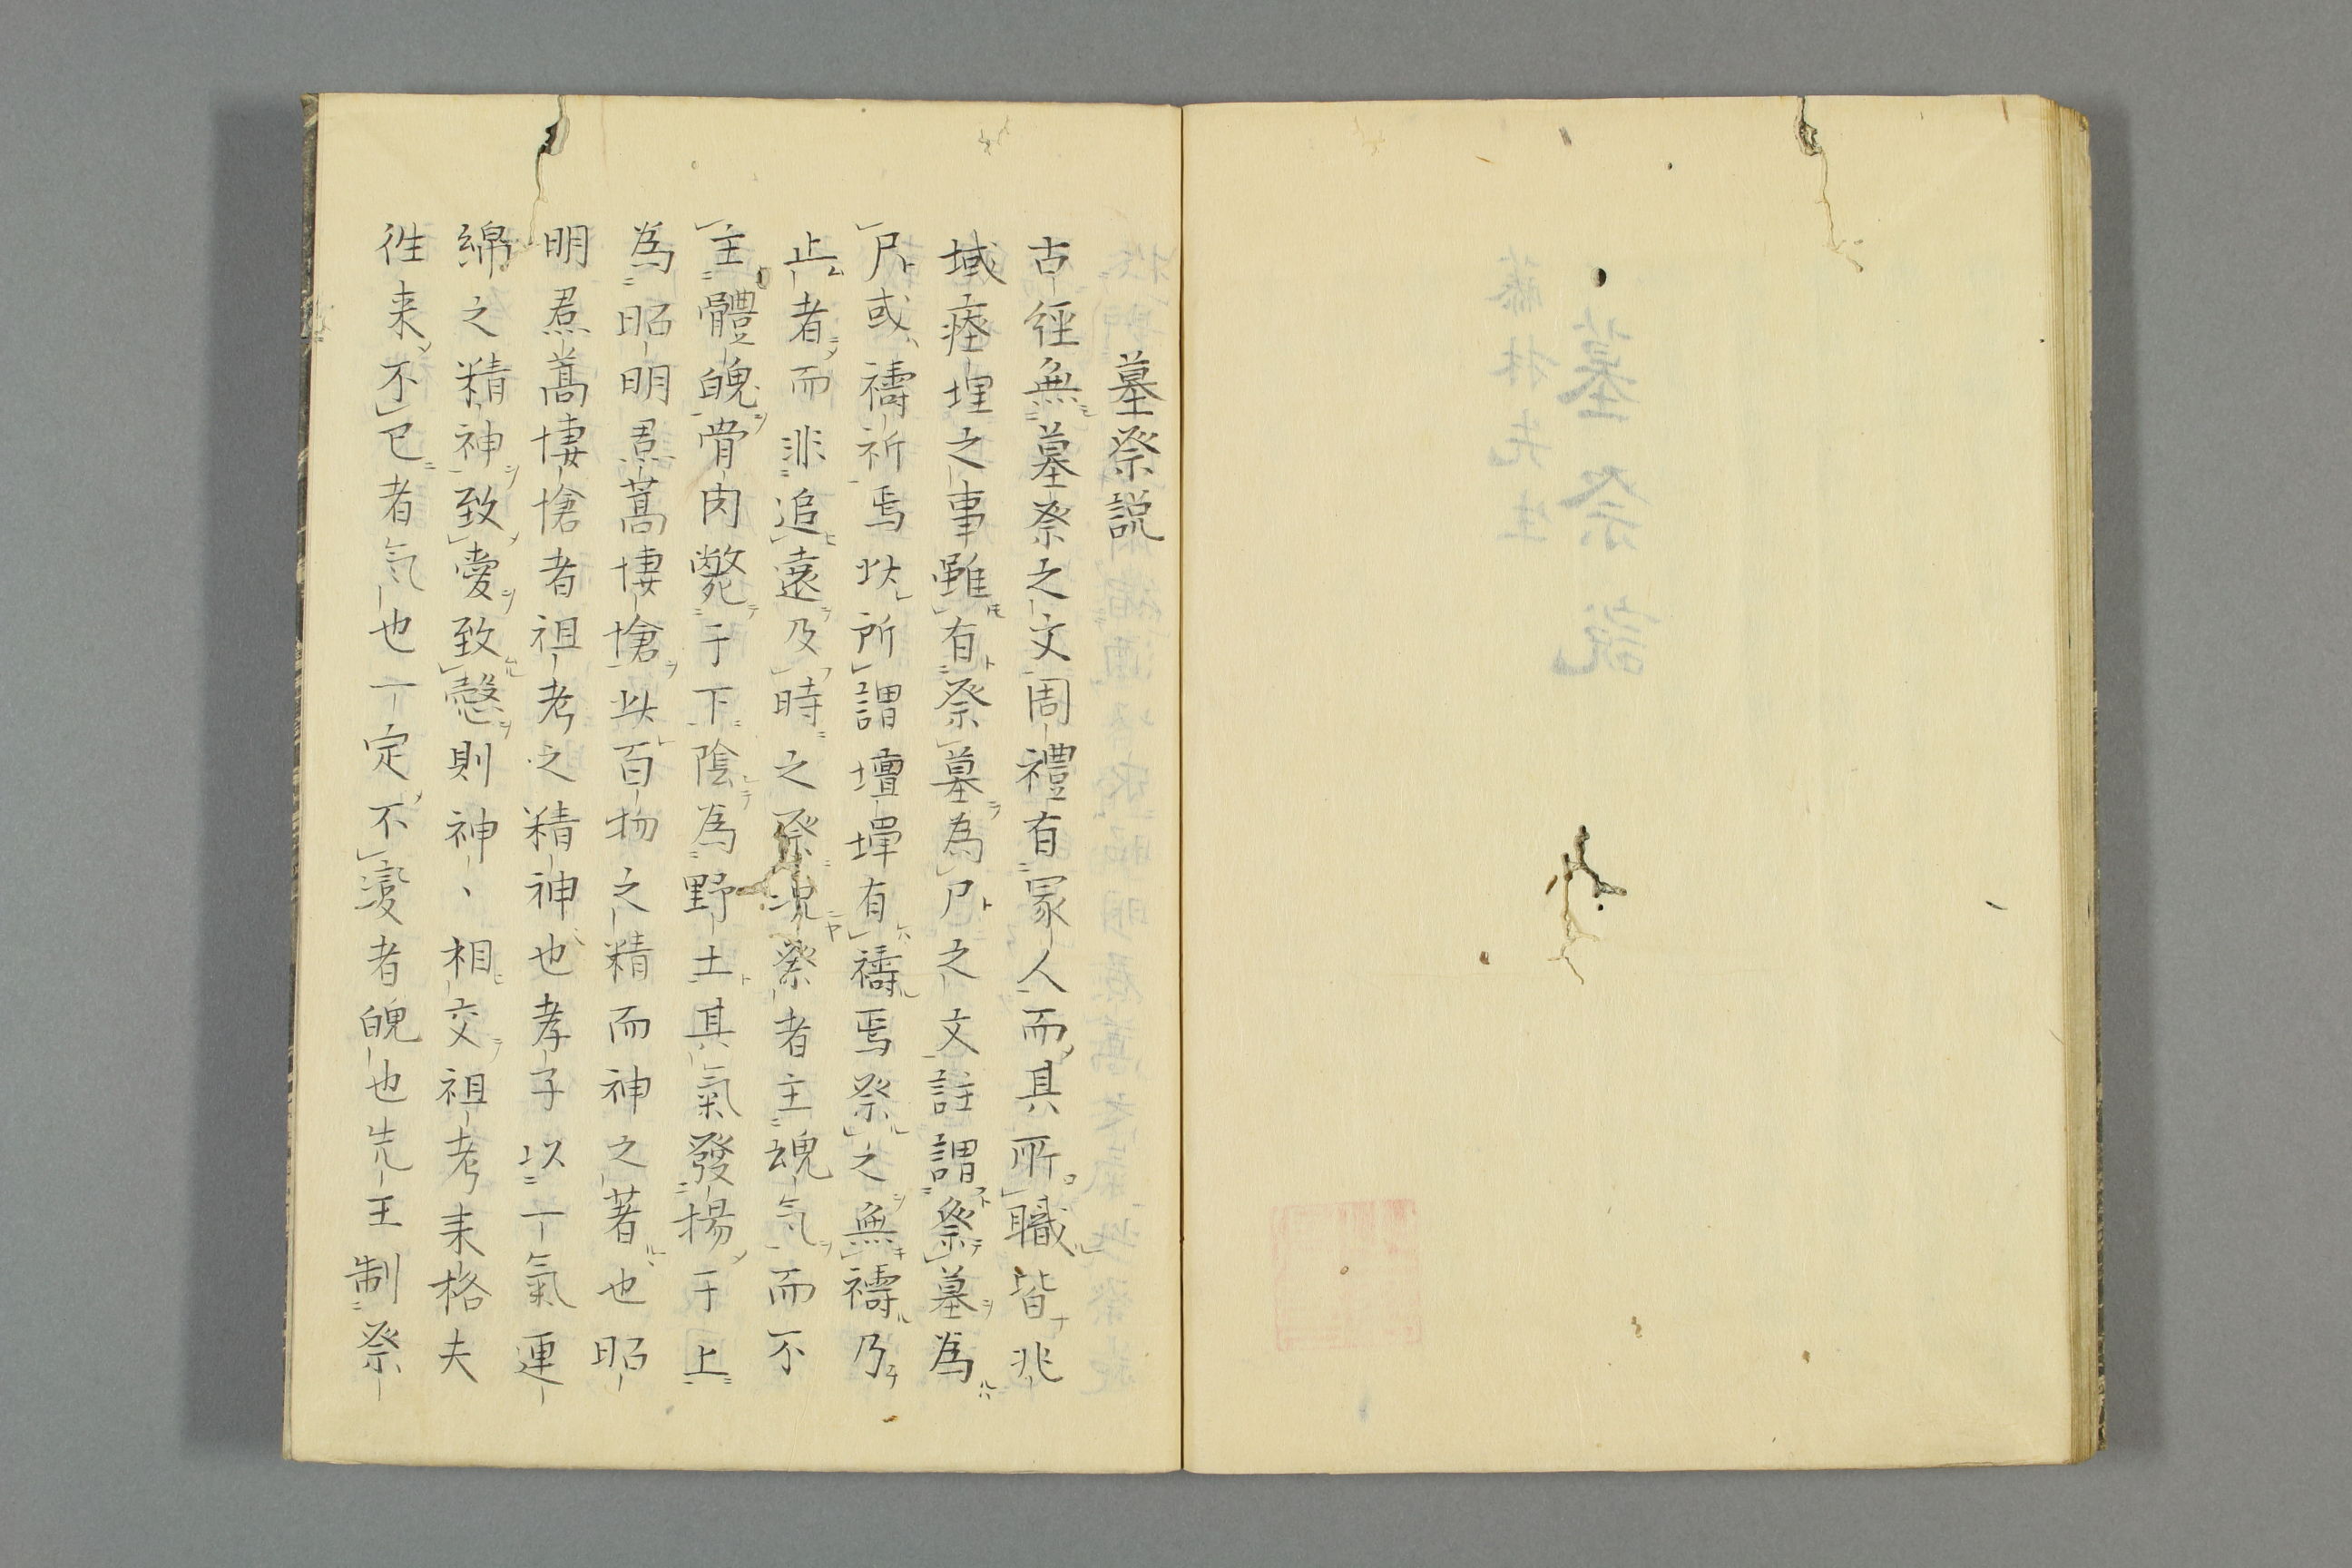 墓祭説
古経無墓祭之文周禮有冢人而其所職皆兆
域瘞埋之事雖有祭墓為尸之文註謂祭墓為
尸或禱祈焉以所謂壇墠有禱焉祭之無禱乃
止者而非追遠及時之祭况祭者主魂气而不
主體魄骨肉斃于下陰為野土其氣發揚于上
為昭明焄蒿悽愴以百物之精而神之著也昭
明焄蒿悽愴者祖考之精神也孝子以一氣連
綿之精神致愛致愨則神、相交祖考来格夫
徃来不已者气也一定不變者魄也先王制祭